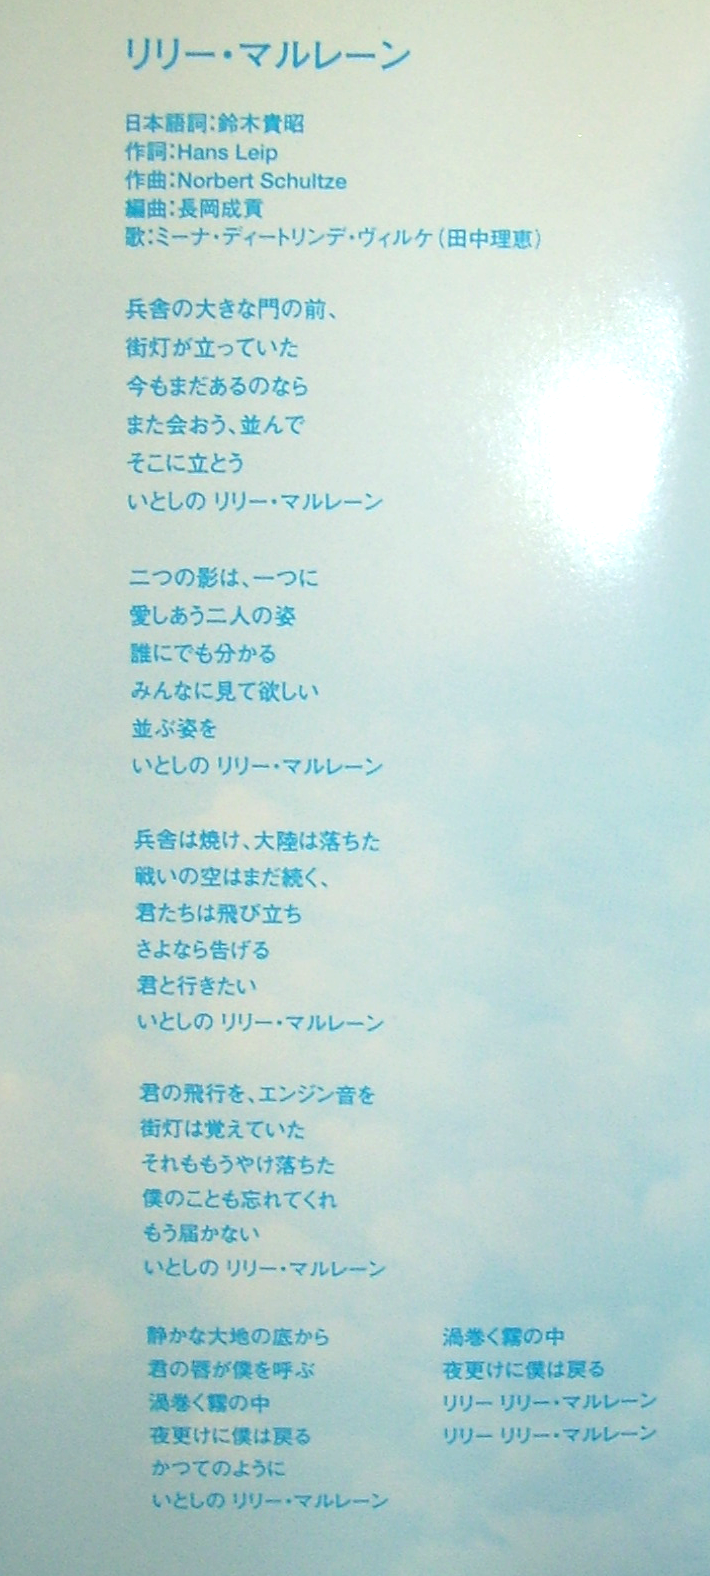 リリー・マルレーン
日本語詞：鈴木貴昭
作詞：Hans Leip
作曲：Norbert Schultze
編曲：長岡成貢
歌：ミーナ・ディートリンデ・ヴィルケ（田中理恵）
兵舎の大きな門の前、
街灯が立っていた
今もまだあるのなら
また会おう、並んで
そこに立とう
いとしの リリー・マルレーン
二つの影は、一つに
愛しあう二人の姿
誰にでも分かる
みんなに見て欲しい
並ぶ姿を
いとしの リリー・マルレーン
兵舎は焼け、大陸は落ちた
戦いの空はまだ続く、
君たちは飛び立ち
さよなら告げる
君と行きたい
いとしの リリー・マルレーン
君の飛行を、エンジン音を
街灯は覚えていた
それももうやけ落ちた
僕のことも忘れてくれ
もう届かない
いとしの リリー・マルレーン
静かな大地の底から
君の唇が僕を呼ぶ
渦巻く霧の中
夜更けに僕は戻る
かつてのように
いとしの リリー・マルレーン
渦巻く霧の中
夜更けに僕は戻る
リリー リリー・マルレーン
リリー リリー・マルレーン